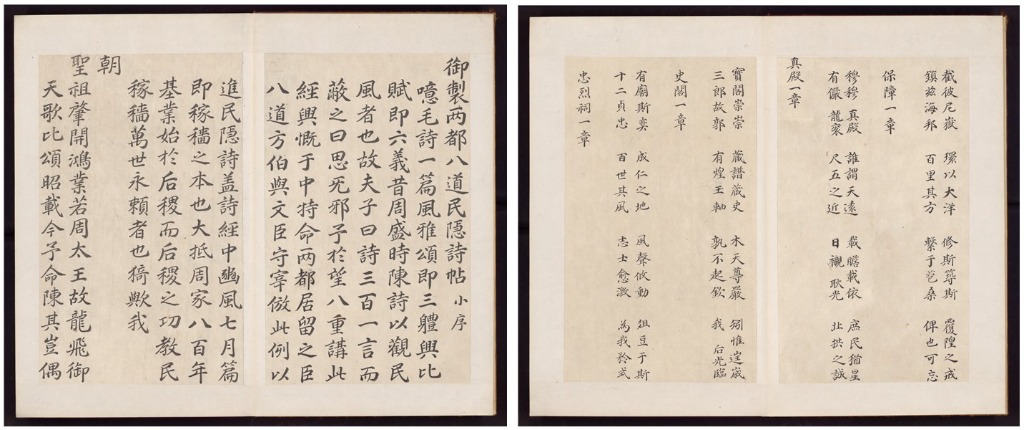 御製两都八道民隱詩帖 小序
噫毛詩一篇風雅頌即三軆興比
賦即六義昔周盛時陳詩以觀民
風者也故夫子曰詩三百一言而
蔽之曰思无邪予於望八重講此
經興慨于中特命两都居留之臣
八道方伯與文臣守宰倣此例以
進民隱詩盖詩經中豳風七月篇
即稼穡之本也大抵周家八百年
基業始於后稷而后稷之功教民
稼穡萬世永賴者也猗歟我
朝
聖祖肇開鴻業若周太王故龍飛御
天歌比頌昭載今予命陳其豈偶
截彼尼嶽 環以大洋 修斯築斯 覆隍之戒
鎮玆海邦 百里其方 繫于苞桑 俾也可忘
保障一章
穆穆真殿 誰謂天遠 載瞻載依 庶民猶星
有儼龍袞 尺五之近 日襯耿光 北拱之誠
真殿一章
寳閣崇崇 藏譜藏史 木天尊嚴 矧惟 歲
三郎故郭 有煌玉軸 孰不起欽 我后光臨
史閣一章
有廟斯奕 成仁之地 風聲攸動 俎豆于斯
十二貞忠 百世其風 志士愈激 為我矜式
忠烈祠一章